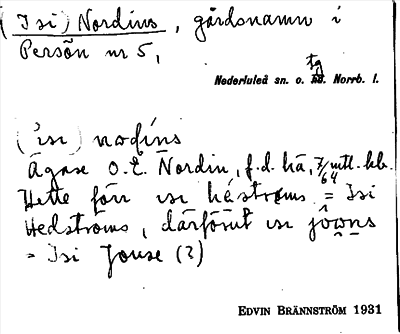 (Isi) Nordins, gårdsnamn i
Persön nr 5,
tg
Nederluleå sn. o. hd. Norrb. l.
('ısı) nordíns
Ägare O. E. Nordin, f. d. hä, 7/64 mtl. kb.
Hette förr ısı héstrøms = Isi
Hedströms, därförut ısı jôwns
= Isi Jonse (?)
EDVIN BRÄNNSTRÖM 1931